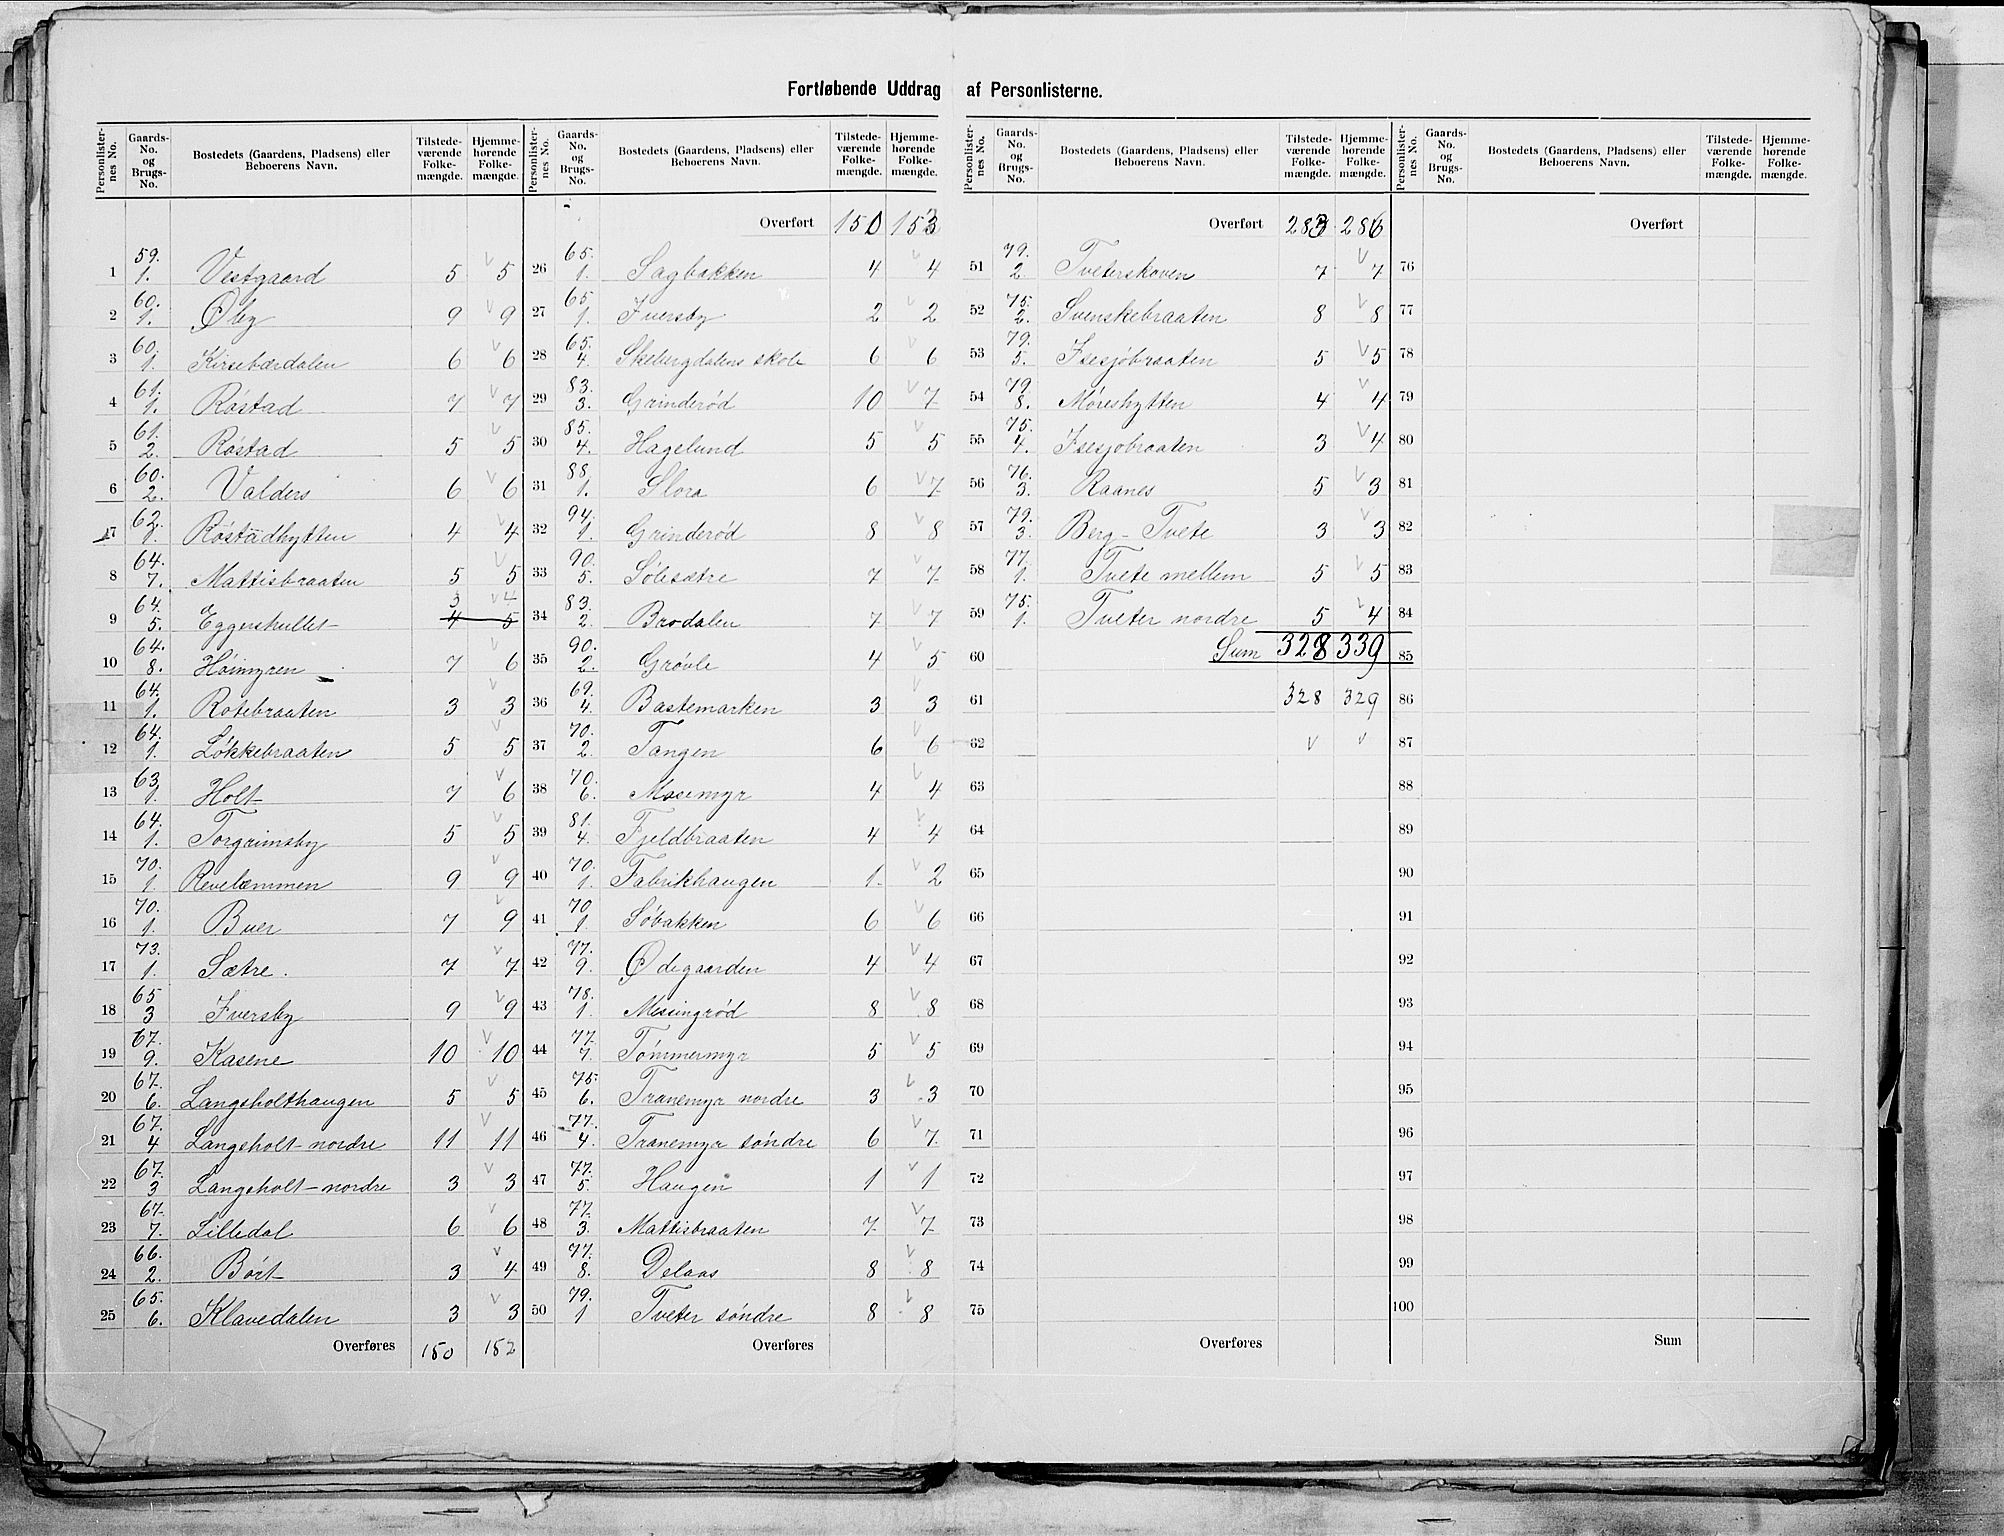 Fortløbende Uddrag af Personlisternes.
Personlisternes No. | Gaards-No. og Brugs-No. | Bostedets (Gaardens, Pladsens) eller Beboerens Navn. | Tilstedeværende Folkemængde. | Hjemmehørende Folkemængde.
1 | 59. 1. | Vestgaard | 5 | 5
2 | 60. 1. | Øby | 9 | 9
3 | 60. 1. | Kirsebærdalen | 6 | 6
4 | 61. 1. | Röstad | 7 | 7
5 | 61. 2. | Röstad | 5 | 5
6 | 60. 2. | Valders | 6 | 6
7 | 62. 1. | Röstadhytten | 4 | 4
8 | 64. 7. | Mattisbraaten | 5 | 5
9 | 64. 5. | Eggershullet | 4 3 | 5 4
10 | 64. 8. | Höimyren | 7 | 6
11 | 64. 1. | Rotebraaten | 3 | 3
12 | 64. 1. | Lökkebraaten | 5 | 5
13 | 63. 1. | Holt | 7 | 6
14 | 64. 1. | Torgrimsby | 5 | 5
15 | 70. 1. | Revelæmmen | 9 | 9
16 | 70. 1. | Buer | 7 | 9
17 | 73. 1. | Sætre. | 7 | 7
18 | 65 3 | Iversby | 9 | 9
19 | 67. 9. | Kasene | 10 | 10
20 | 67. 6. | Langsholthaugen | 5 | 5
21 | 67. 4 | Langsholt-nordre | 11 | 11
22 | 67. 3 | Langsholt-nordre | 3 | 3
23 | 67. 7. | Lilledal | 6 | 6
24 | 66. 2. | Bört | 3 | 4
25 | 65. 6. | Klavedalen | 3 | 3
Overføres | 150 | 152
Personlisternes No. | Gaards-No. og Brugs-No. | Bostedets (Gaardens, Pladsens) eller Beboerens Navn. | Tilstedeværende Folkemængde. | Hjemmehørende Folkemængde.
Overført | 150 | 153
26 | 65. 1. | Sagbakken | 4 | 4
27 | 65. 1. | Iversby | 2 | 2
28 | 65. 4. | Skebergdalens skole | 6 | 6
29 | 83. 3. | Grinderød | 10 | 7
30 | 85. 4. | Hagelund | 5 | 5
31 | 88. 1. | Slora | 6 | 7
32 | 94. 1. | Grinderød | 8 | 8
33 | 90. 5. | Sölesætre | 7 | 7
34 | 83. 2. | Brodalen | 7 | 7
35 | 90. 2. | Grövle | 4 | 5
36 | 69. 4. | Bastemarken | 3 | 3
37 | 70. 2. | Tangen | 6 | 6
38 | 70. 6. | Mosemyr | 4 | 4
39 | 81. 4. | Fjeldbraaten | 4 | 4
40 | 70. 1. | Fabrikhaugen | 1. | 2
41 | 70 1. | Söbakken | 6 | 6
42 | 77. 9. | Ødegaarden | 4 | 4
43 | 78. 1. | Missingröd | 8 | 8
44 | 77. 7. | Tömmermyr | 5 | 5
45 | 75. 6. | Tranemyr nordre | 3 | 3
46 | 77. 4. | Tranemyr söndre | 6 | 7
47 | 77. 5. | Haugen | 1 | 1
48 | 77. 3. | Mattisbraaten | 7 | 7
49 | 77. 8. | Delaas | 8 | 8
50 | 79. 1 | Tveter söndre | 8 | 8
Overføres
Personlisternes No. | Gaards-No. og Brugs-No. | Bostedets (Gaardens, Pladsens) eller Beboerens Navn. | Tilstedeværende Folkemængde. | Hjemmehørende Folkemængde.
Overført | 283 | 286
51 | 79. 2 | Tveterskoven | 7 | 7
52 | 75. 2. | Svenskebraaten | 8 | 8
53 | 79. 5. | Isesjöbraaten | 5 | 5
54 | 79. 8. | Möreshytten | 4 | 4
55 | 75. 4. | Isesjöbraaten | 3 | 4
56 | 76. 3. | Raanes | 5 | 3
57 | 79. 3. | Berg-Tvete | 3 | 3
58 | 77. 1. | Tvete mellem | 5 | 5
59 | 75. 1. | Tveter nordre | 5 | 4
60 | Sum | 328 | 339
61 | 328 | 329
62
63
64
65
66
67
68
69
70
71
72
73
74
75
Overføres
Personlisternes No. | Gaards-No. og Brugs-No. | Bostedets (Gaardens, Pladsens) eller Beboerens Navn. | Tilstedeværende Folkemængde. | Hjemmehørende Folkemængde.
Overført
76
77
78
79
80
81
82
83
84
85
86
87
88
89
90
91
92
93
94
95
96
97
98
99
100
Sum